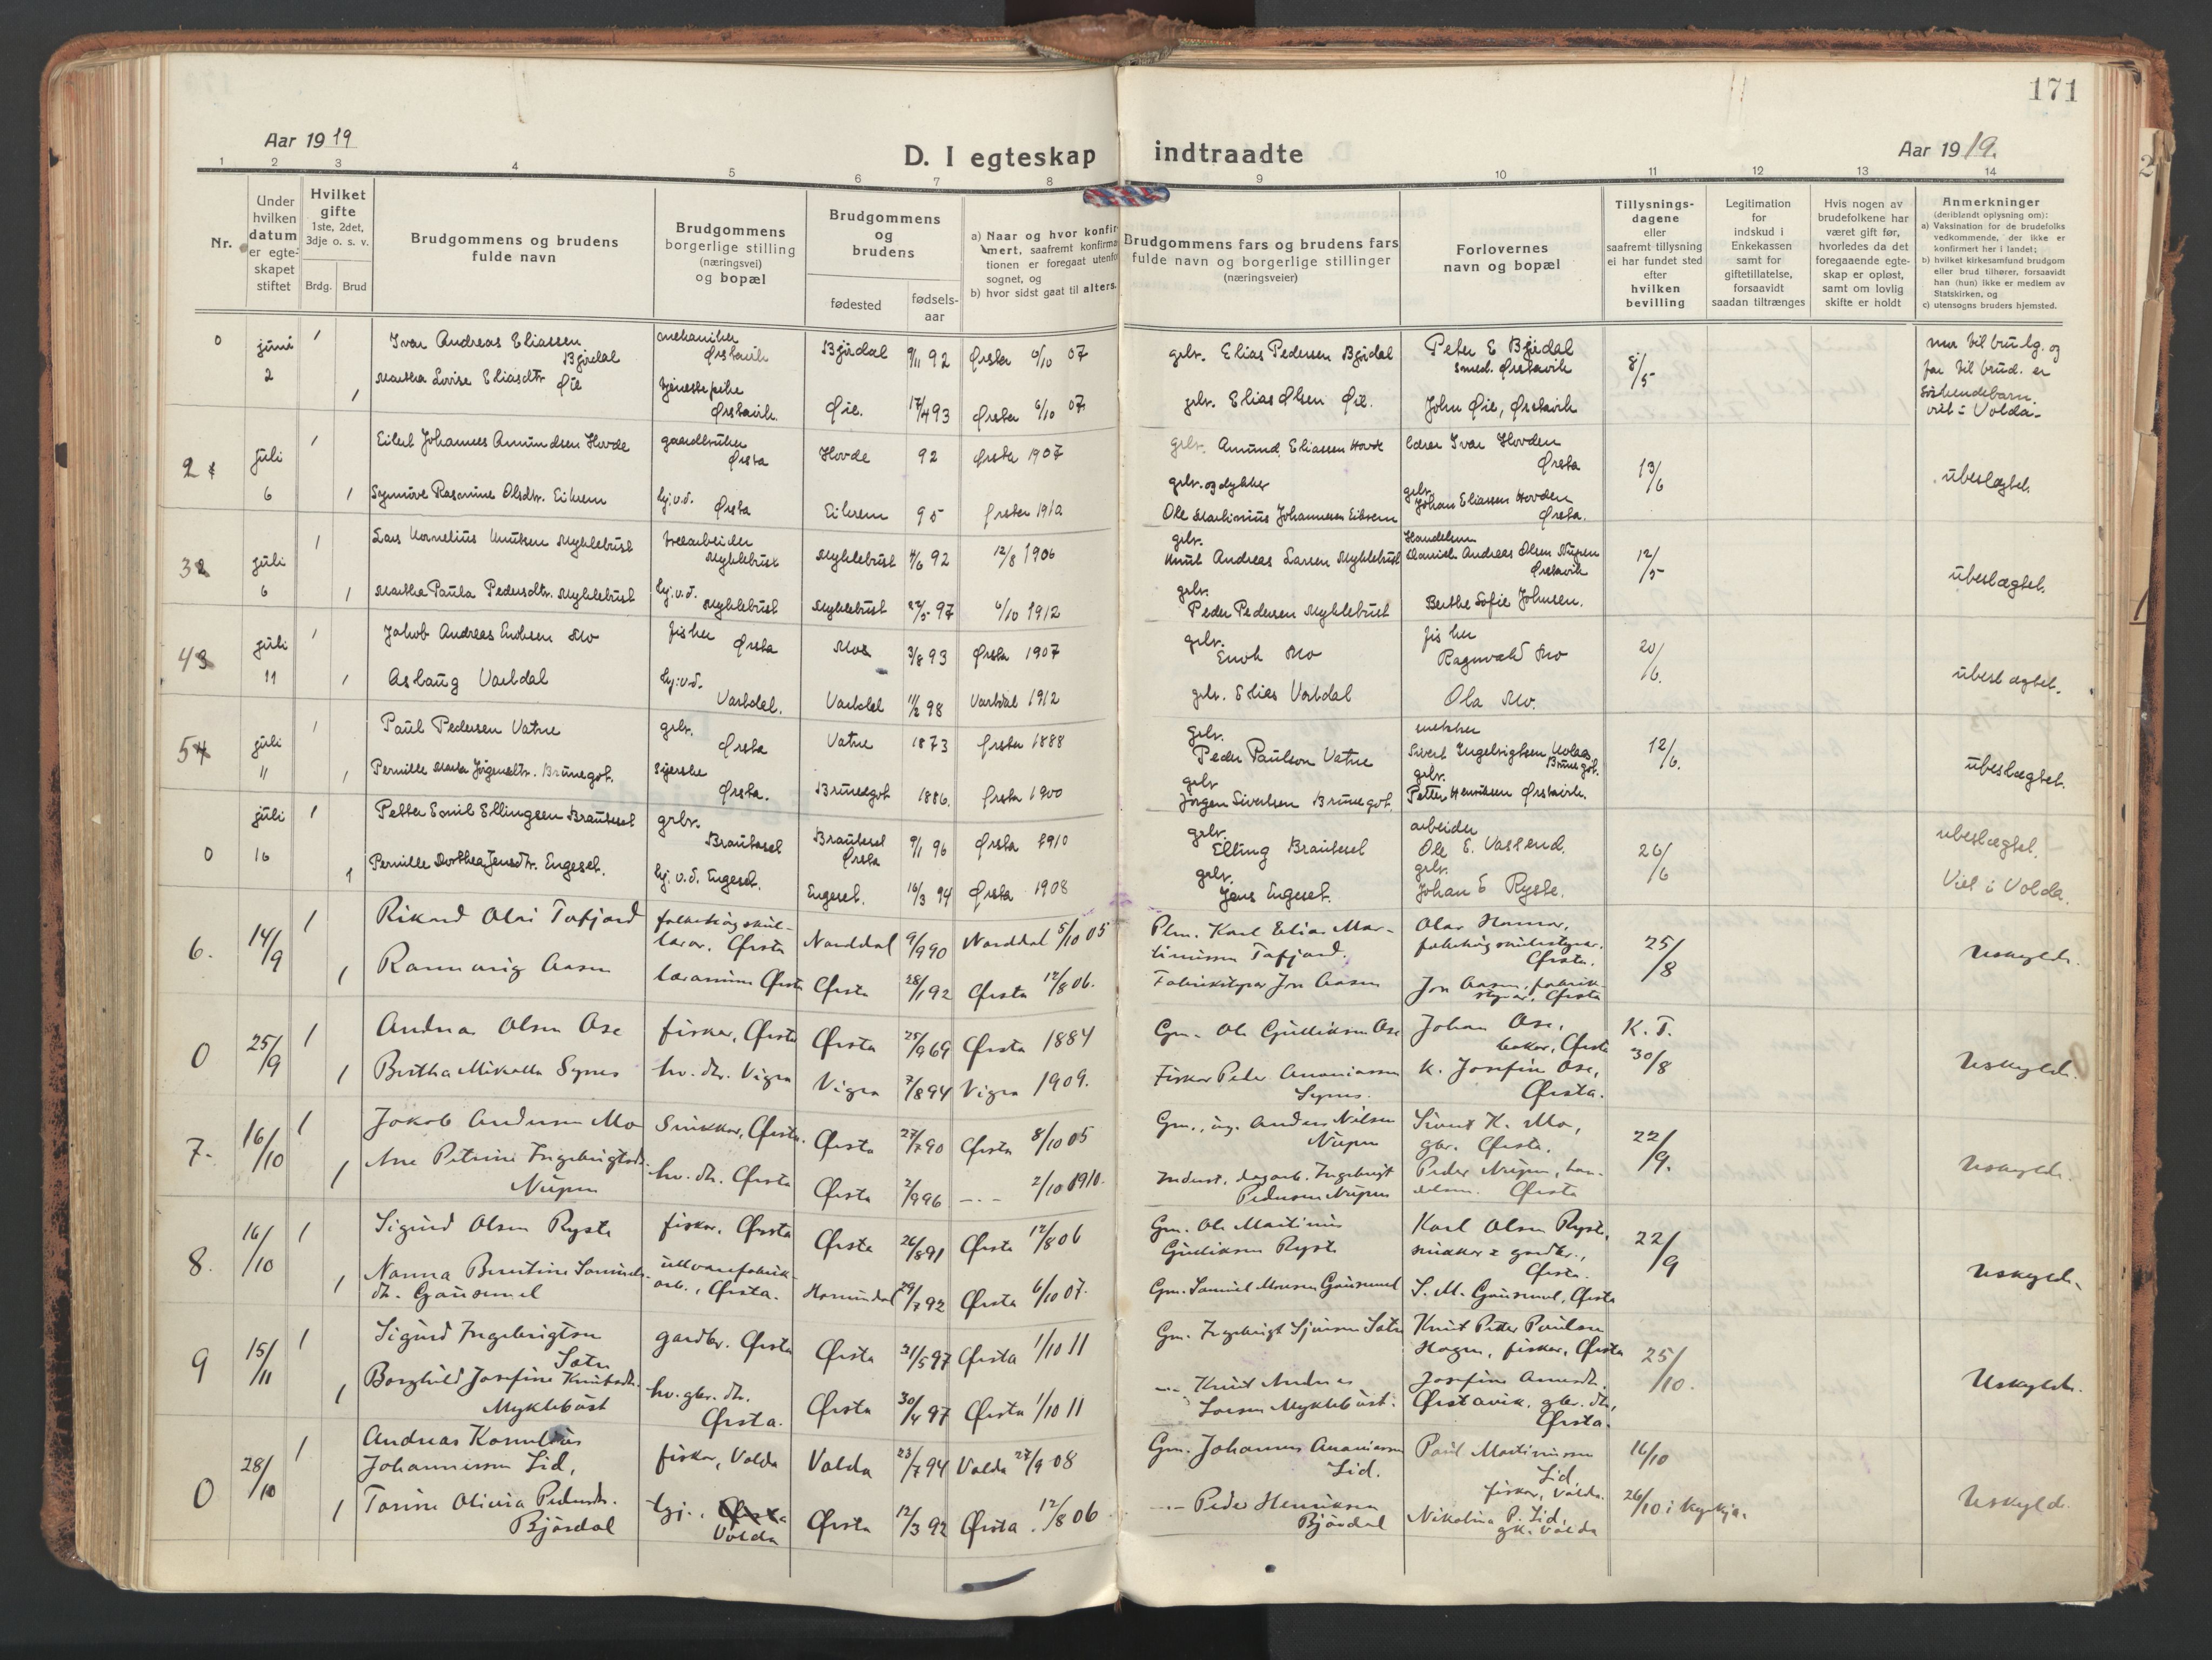 171
Aar 1919
D. I egteskap indtraadte
Aar 1919.
1 2 3 4 5 6 7 8 9 10 11 12 13 14
Nr.
Under hvilken datum er egteskapet stiftet
Hvilket gifte 1ste, 2det, 3dje o. s. v.
Brdg. Brud
Brudgommens og brudens fulde navn
Brudgommens borgerlige stilling (næringsvei) og bopæl
Brudgommens og brudens
fødested
fødselsaar
a) Naar og hvor konfirmert, saafremt konfirmationen er foregaat utenfor sognet, og
b) hvor sidst gaat til alters.
Brudgommens fars og brudens fars fulde navn og borgerlige stillinger (næringsveier)
Forlovernes navn og bopæl
Tillysningsdagene eller saafremt tillysning ei har fundet sted efter hvilken bevilling
Legitimation for indskud i Enkekassen samt for giftetillatelse, forsaavidt saadan tiltrænges
Hvis nogen av brudefolkene har været gift før, hvorledes da det foregaaende egteskap er opløst, samt om lovlig skifte er holdt
Anmerkninger
(deriblandt oplysning om):
a) Vaksination for de brudefolks vedkommende, der ikke er konfirmert her i landet;
b) hvilket kirkesamfund brudgom eller brud tilhører, forsaavidt han (hun) ikke er medlem av Statskirken, og
c) utensogns bruders hjemsted.
0 juni 2 1 Ivar Andreas Eliassen Bjørdal mekaniker Ørstavik Bjørdal 9/11 92 Ørsta 6/10 07 grbr. Elias Pedersen Bjørdal Peter E Bjørdal smed. Ørstavik 8/5 mor til brudg. og far til brud. er søskendebarn. viet i Volda.
1 Martha Lovise Eliasdtr. Øie tjenestepike Ørstavik. Øie. 17/4 93 Ørsta 6/10 07 grbr. Elias Olsen Øie. John Øie, Ørstavik
2 juli 6 1 Eilert Johannes Amundsen Hovde gaardbruker Ørsta Hovde 92 Ørsta 1907 grbr. Amund Eliassen Hovde lærer Ivar Hovden Ørsta 13/6 ubeslægtet.
1 Synnøve Rasmine Olsdtr. Eikrem hj.v.d. Ørsta Eikrem 95 Ørsta 1910 grbr. og dykker Ole Martinius Johannessen Eikrem grbr. Johan Eliassen Hovden Ørsta.
3 juli 6 1 Lars Kornelius Knutsen Myklebust træarbeider Myklebust Myklebust 4/6 92 12/8 1906 grbr. Knut Andreas Larsen Myklebust Handelsm. Daniel Andreas Olsen Nupen Ørstavik 12/5 ubeslægtet.
1 Martha Paula Pedersdtr. Myklebust hj.v.d. Myklebust Myklebust 27/5 97 6/10 1912 grbr. Peder Pedersen Myklebust Berthe Sofie Johnsen.
4 juli 11 1 Jakob Andreas Enoksen Mo fisker Ørsta Mo 3/8 93 Ørsta 1907 grbr. Enok Mo fisker Ragnvald Mo 20/6. ubeslægtet.
1 Aslaug Vartdal hj.v.d. Vartdal. Vartdal 11/2 98 Vartdal 1912 grbr. Elias Vartdal Ola Mo.
5 juli 11 1 Paul Pedersen Vatne grbr. Ørsta Vatne 1873 Ørsta 1888 grbr. Peder Paulson Vatne snekker Sivert Ingebrigtsen Brunegot. 12/6. ubeslægtet.
1 Pernille Marta Jørgensdtr. Brunegot. syerske Ørsta. Brunegot 1886. Ørsta 1900 grbr. Jørgen Sivertsen Brunegot. grbr. Petter Henriksen Ørstavik.
0 juli 16 1 Petter Emil Ellingsen Brautaset grbr. Brautaset Brautaset Ørsta 9/1 96 Ørsta 1910 grbr. Elling Brautaset arbeider Ole E. Vassend. 26/6 ubeslægtet. Viet i Volda.
1 Pernille Dorthea Jensdtr. Engeset. hj.v.d. Engeset. Engeset. 16/3 94 Ørsta 1908 grbr. Jens Engeset. grbr. Johan E Ryste.
6. 14/9 1 Rikard Olai Tafjord folkehøgskullærar. Ørsta Norddal 9/9 90 Norddal 5/10 05 Plm. Karl Elias Martinussen Tafjord. Olav Hamar, folkehøgskulestyrar. Ørsta. 25/8 Uskylde.
1 Rannveig Aasen lærarinne Ørsta Ørsta 28/1 92 Ørsta 12/8 06. Fabrikstyrar Jon Aasen Jon Aasen, fabrikstyrar, Ørsta
0 25/9 1 Andreas Olsen Ose fiskar, Ørsta Ørsta 25/9 69 Ørsta 1884 Gm. Ole Gjulliksen Ose Johan Ose, bakar, Ørsta K. T. 30/8 Uskylde.
1 Bertha Mikalla Synes hv. dtr. Vigra Vigra 7/8 94 Vigra 1909. Fiskar Peder Ananiassen Synes. K. Josefine Ose, Ørsta.
7. 16/10 1 Jakob Andersen Mo Snikkar, Ørsta. Ørsta 27/7 90 Ørsta 8/10 05 Gm., Anders Nilsen Nupen Sivert K. Mo, gbr. Ørsta. 22/9. Uskylde.
1 Ane Petrine Ingebrigtsdtr. Nupen hv. dtr. Ørsta Ørsta 2/9 96 -.- 2/10 1910. Indust. dagarb. Ingebrigt Pedersen Nupen Peder Nupen, handelsm. Ørsta
8. 16/10 1 Sigurd Olsen Ryste fiskar, Ørsta Ørsta 26/8 91 Ørsta 12/8 06 Gm. Ole Martinus Gjulliksen Ryste Karl Olsen Ryste, snikkar & gardbr., Ørsta. 22/9 Uskylde.
1 Nanna Berntine Samuelsdtr. Gausemel ullvarefabrikarb., Ørsta. Hornindal 29/7 92 Ørsta 6/10 07. Gm. Samuel Monsen Gausemel S. M. Gausemel, Ørsta
9 15/11 1 Sigurd Ingebrigtsen Sætre gardbr. Ørsta Ørsta 21/5 97 Ørsta 1/10 11 Gm. Ingebrigt Sjursen Sætre Knut Petter Paulsen Hagen, fiskar, Ørsta 25/10. Uskylde.
1 Borghild Josefine Knutsdtr. Myklebust hv. gbr. dtr. Ørsta. Ørsta 30/4 97 Ørsta 1/10 11 -.- Knut Andreas Larsen Myklebust. Josefine Ørstavik. gbr. dtr, Ørsta.
0 28/10 1 Andreas Kornelius Johannessen Lid, fiskar, Volda Volda 23/7 94 Volda 27/9 08 Gm. Johannes Ananiassen Lid. Paul Martinussen Lid, fiskar, Volda. 16/10 26/10 i kyrkja. Uskylde.
1 Tarine Olivia Pedersdtr. Bjørdal tgj., Volda Ørsta 12/3 92 Ørsta 12/8 06 -.- Peder Henriksen Bjørdal Nikolina P. Lid, gk. Volda